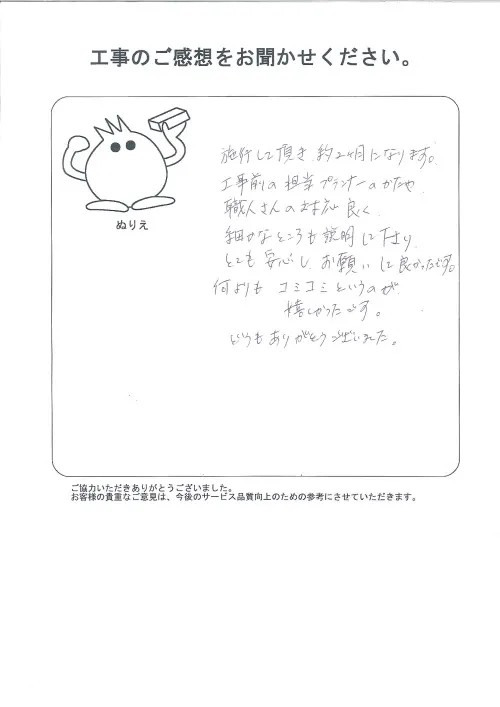 工事のご感想をお聞かせください。
ぬりえ
施行して頂き 約2ヶ月になります。
工事前の担当プランナーのかたや
職人さんの対応良く、
細かなところも説明して下さり、
とても安心し、お願いして良かったです。
何よりも コミコミというのが
嬉しかったです。
どうもありがとうございました。
ご協力いただきありがとうございました。
お客様の貴重なご意見は、今後のサービス品質向上のための参考にさせていただきます。